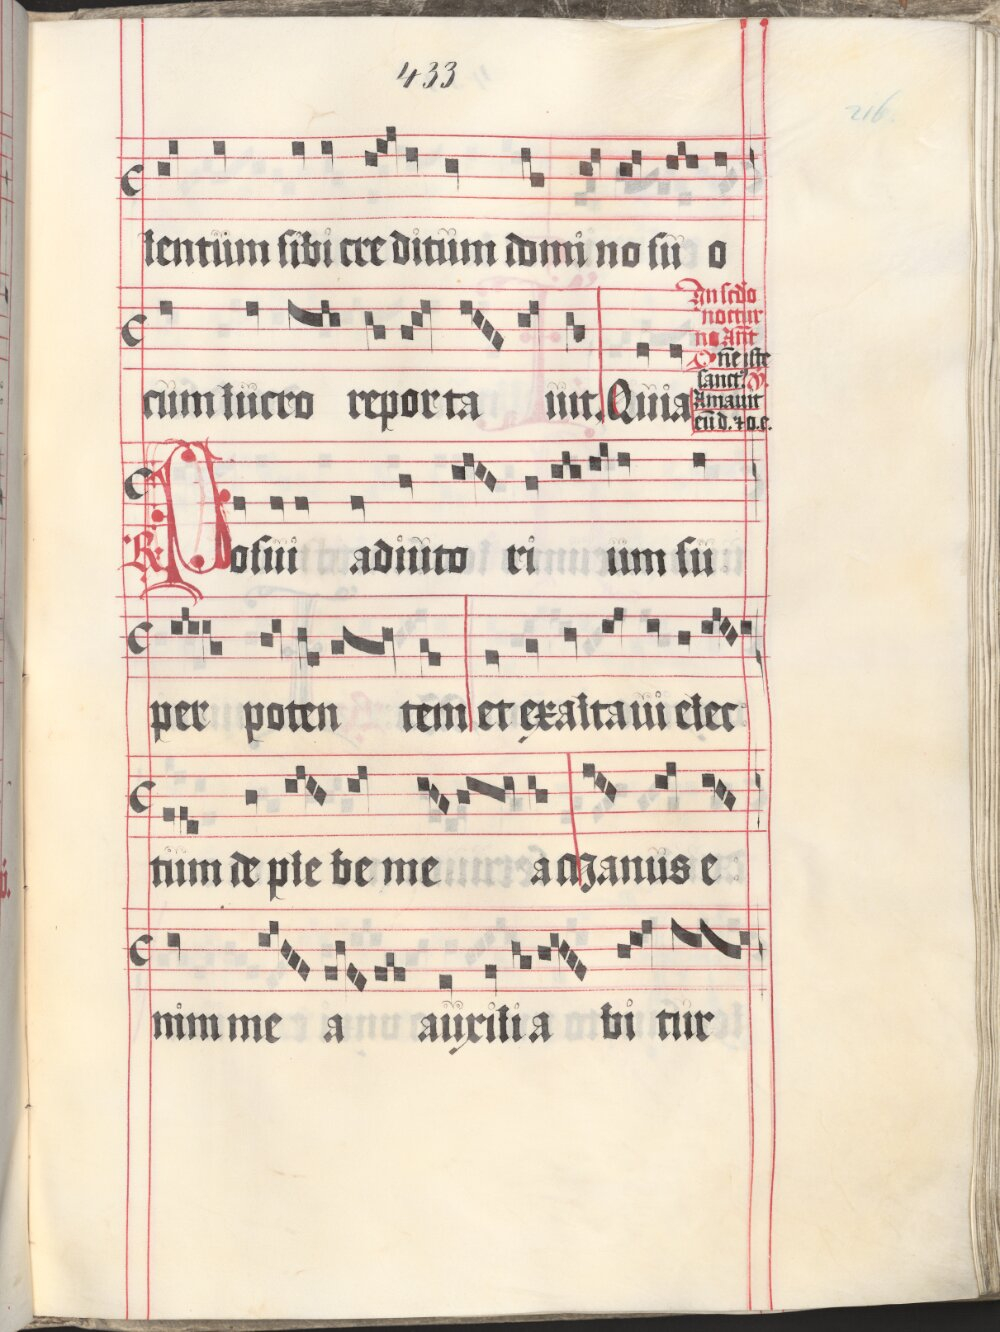 433
216.
lentum sibi cre ditum domi no su o
cum lucro reporta uit. Quia
An scdo
noctur
no Ant
Dne iste
sanct9 V.
Amauit
eu d. 7 o. e.
R. Posui adiuto ri um su
per poten tem et exaltaui elec
tum de ple be me a Manus e
nim me a auxilia bi tur